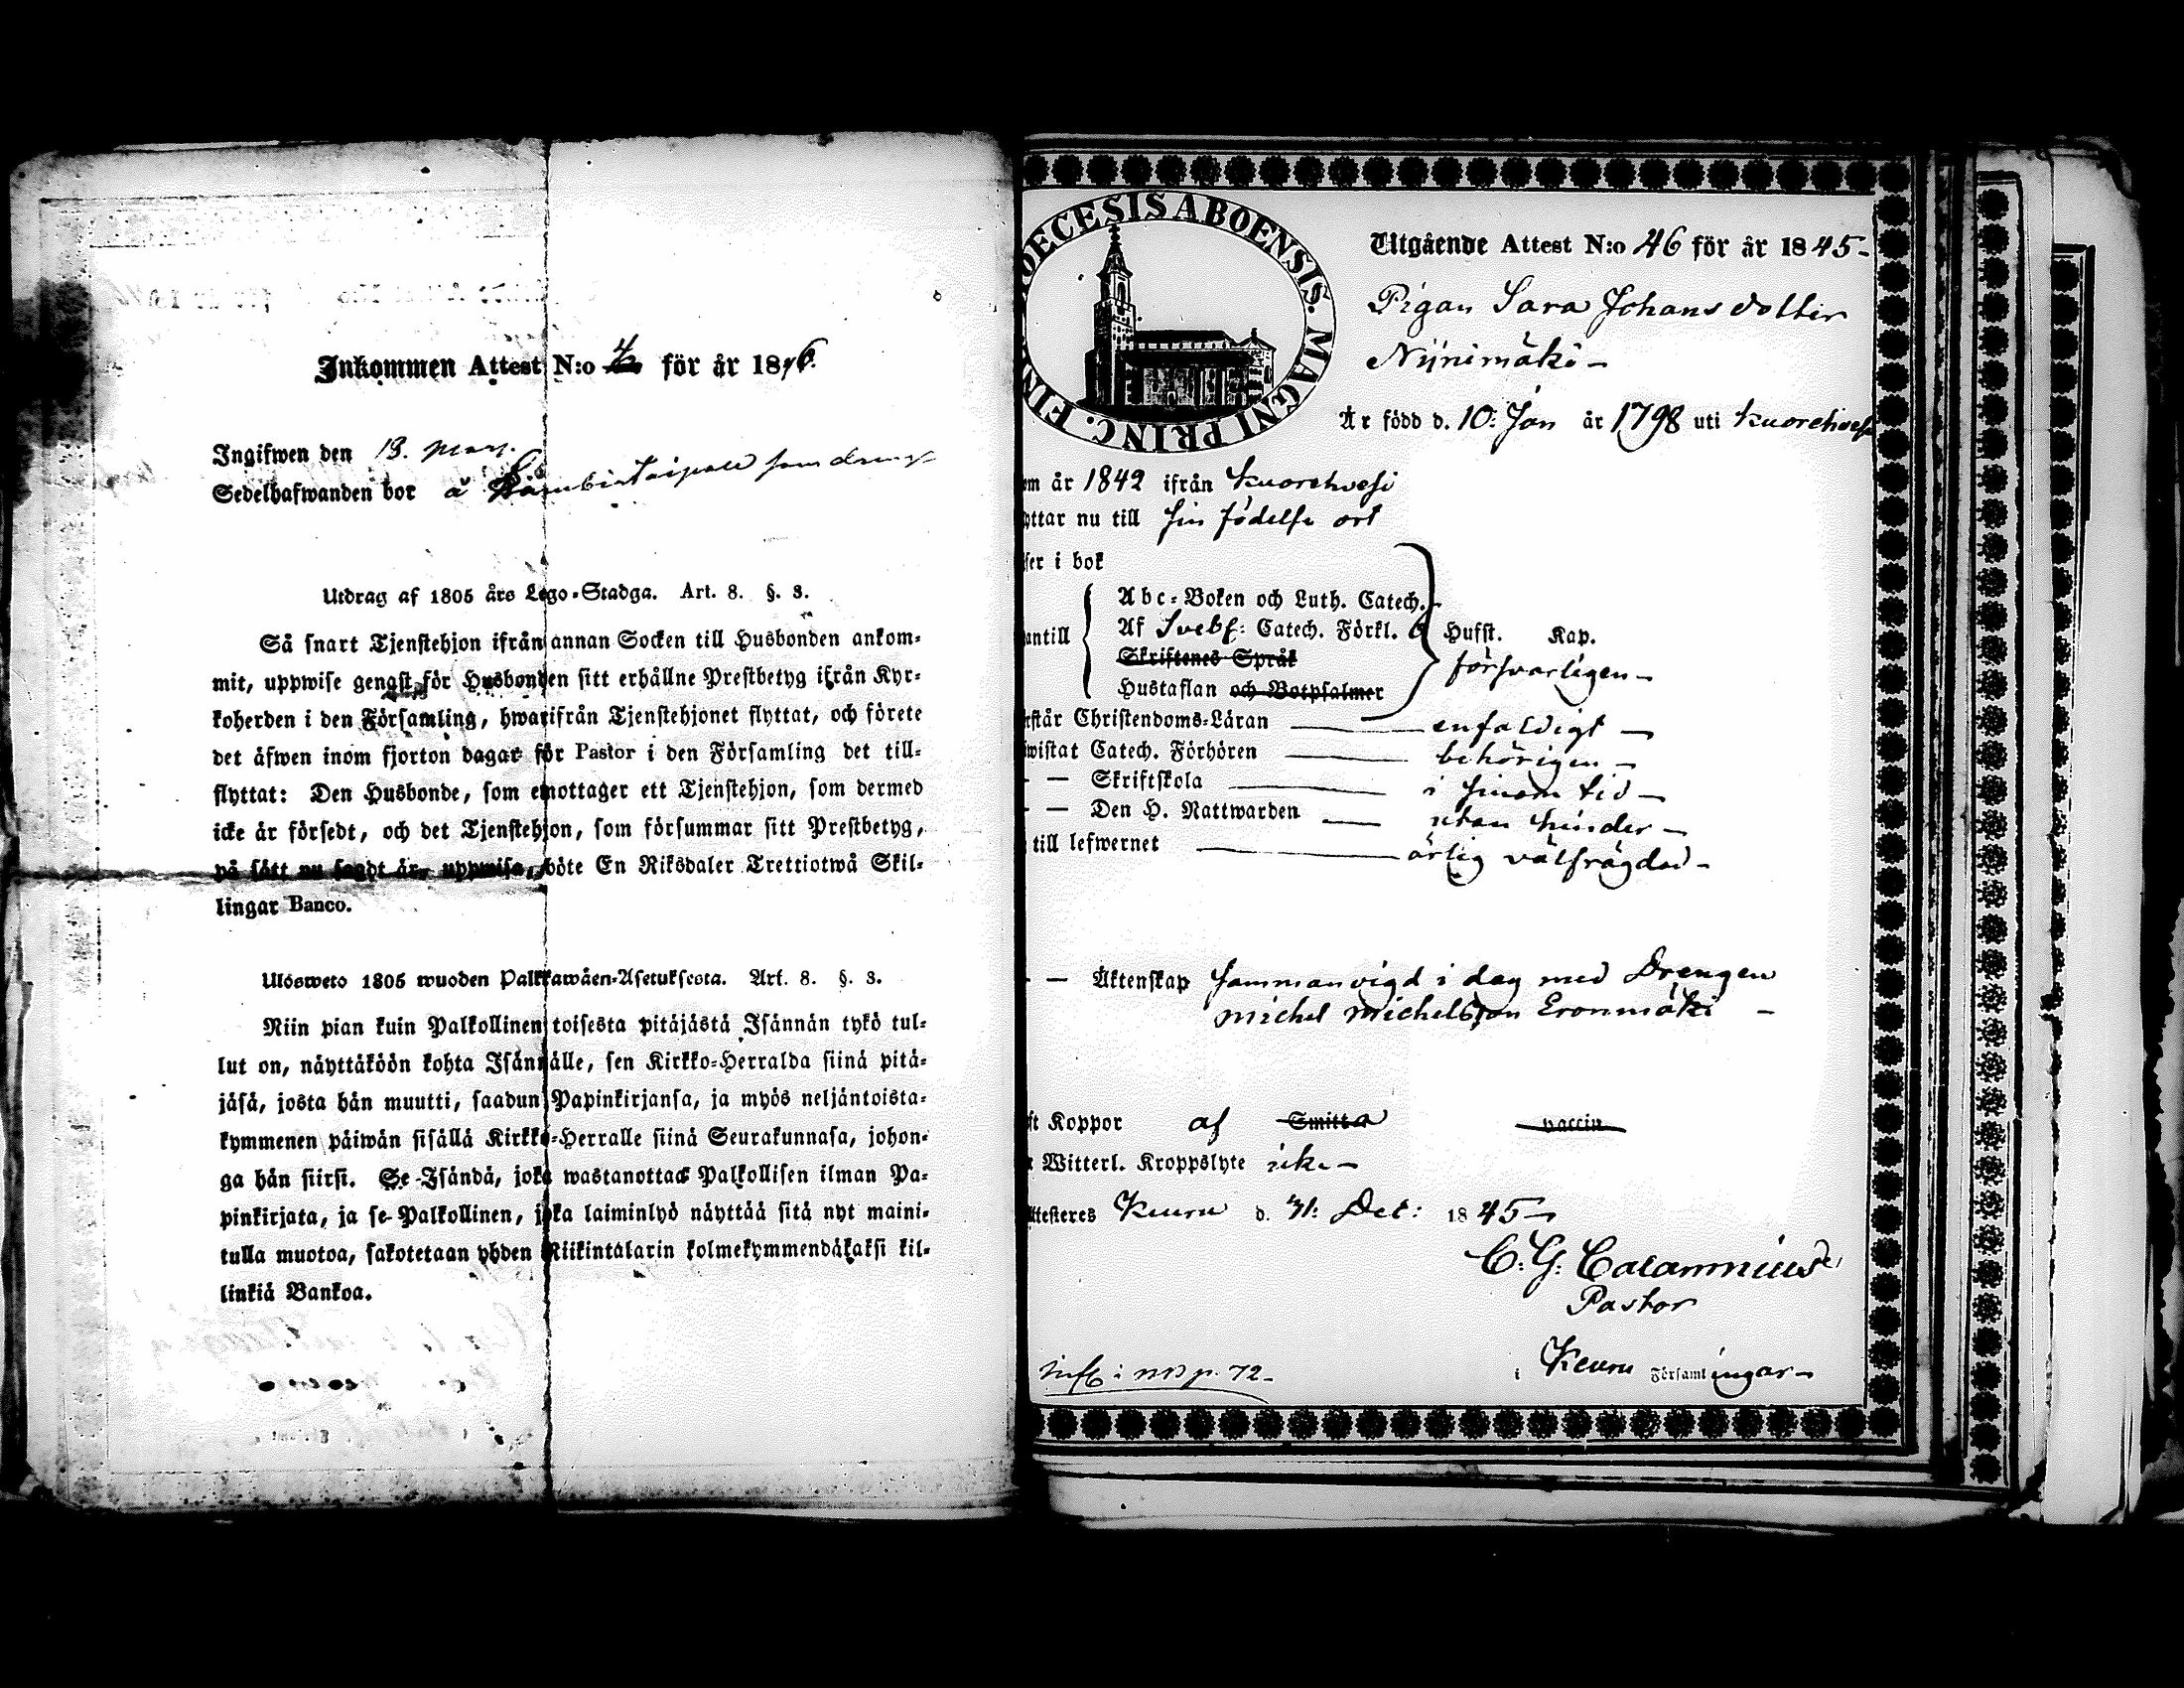 Inkommen Attest N:o 4 för år 1846.
Ingifwen den 13. Mars.
Sedelhafwanden bor å som dreng
Utdrag af 1805 års Lego-Stadga. Art. 8. §. 3.
Så snart Tjenstehjon ifrån annan Socken till Husbonden ankom-
mit, uppwise genast för Husbonden sitt erhållne Prestbetyg ifrån Kyr-
koherden i den Församling, hwarifrån Tjenstehjonet flyttat, och förete
det äfwen inom fjorton dagar för Pastor i den Församling det till-
flyttat: Den Husbonde, som emottager ett Tjenstehjon, som dermed
icke är försedt, och det Tjenstehjon, som försummar sitt Prestbetyg,
på sätt nu sagdt är, uppwisa, böte En Riksdaler Trettiotwå Skil-
lingar Banco.
Ulosweto 1805 wuoden Palkkawäen-Asetuksesta. Art. 8. §. 3.
Niin pian kuin Palkollinen toisesta pitäjästä Isännän tykö tul-
lut on, näyttäköön kohta Isännälle, sen Kirkko-Herralda siinä pitä-
jäsä, josta hän muutti, saadun Papinkirjansa, ja myös neljäntoista-
kymmenen päiwän sisällä Kirkko-Herralle siinä Seurakunnasa, johon-
ga hän siirsi. Se Isändä, joka wastanottaa Palkollisen ilman Pa-
pinkirjata, ja se Palkollinen, joka laiminlyö näyttää sitä nyt maini-
tulla muotoa, sakotetaan yhden Riikintalarin kolmekymmendäkaksi kil-
linkiä Bankoa.
OECESIS ABOENSIS. MAGNI PRINC. FIN
Utgående Attest N:o 46 för år 1845-
Pigan Sara Johansdotter
Niinimäki-
Är född d. 10: Jan år 1798 uti Kuorehvesi
om år 1842 ifrån Kuorehvesi
yttar nu till sin födelse ort
ser i bok
Abc-Boken och Luth. Catech.
antill Af Svebs: Catech. Förkl. Husst. Kap.
Skriftenes Språk
försvarligen-
Hustaflan och Botpsalmer
rstår Christendoms-Läran enfaldigt-
wistat Catech. Förhören behörigen-
- - Skriftskola i sinom tid-
- - Den H. Nattwarden utan hinder-
till lefwernet ärlig välfrägdad-
- - Äktenskap Sammanvigd i dag med Drengen
Michel Michelsson Eronmäki -
ft Koppor af Smitta vaccin
r Witterl. Kroppslyte icke-
ttesteres Keuru d. 31: Dec: 1845-
C. G. Calamnius
Pastor
i Keuru Församlingar-
p. 72-